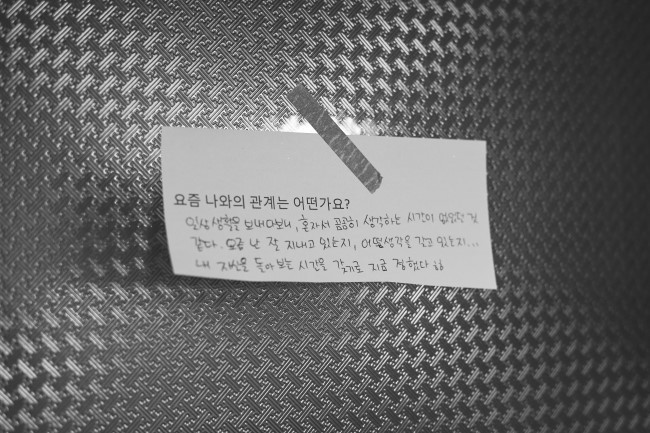 요즘 나와의 관계는 어떤가요?
일상생활을 보내다보니, 혼자서 곰곰히 생각하는 시간이 없었던 것
같다. 요즘 난 잘 지내고 있는지, 어떨생각을 갖고 있는지...
내 자신을 돌아보는 시간을 갖기로 지금 정했다 ㅎㅎ